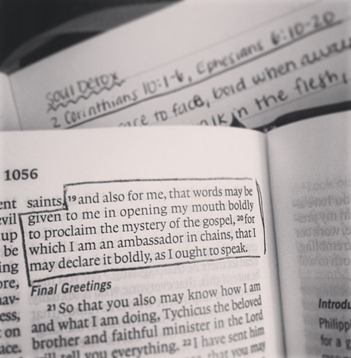 soul detox
2 Corinthians 10:1-6, Ephesians 6:10-20
to face, bold when away
in the flesh,
1056
saints, 19 and also for me, that words may be
given to me in opening my mouth boldly
to proclaim the mystery of the gospel, 20 for
which I am an ambassador in chains, that I
may declare it boldly, as I ought to speak.
Final Greetings
21 So that you also may know how I am
and what I am doing, Tychicus the beloved
brother and faithful minister in the Lord
will tell you everything. 22 I have sent him
that you may
ent
evil
up
be
ing
ore,
hav-
ess,
on
ace.
Introdu
Philipp
for a g